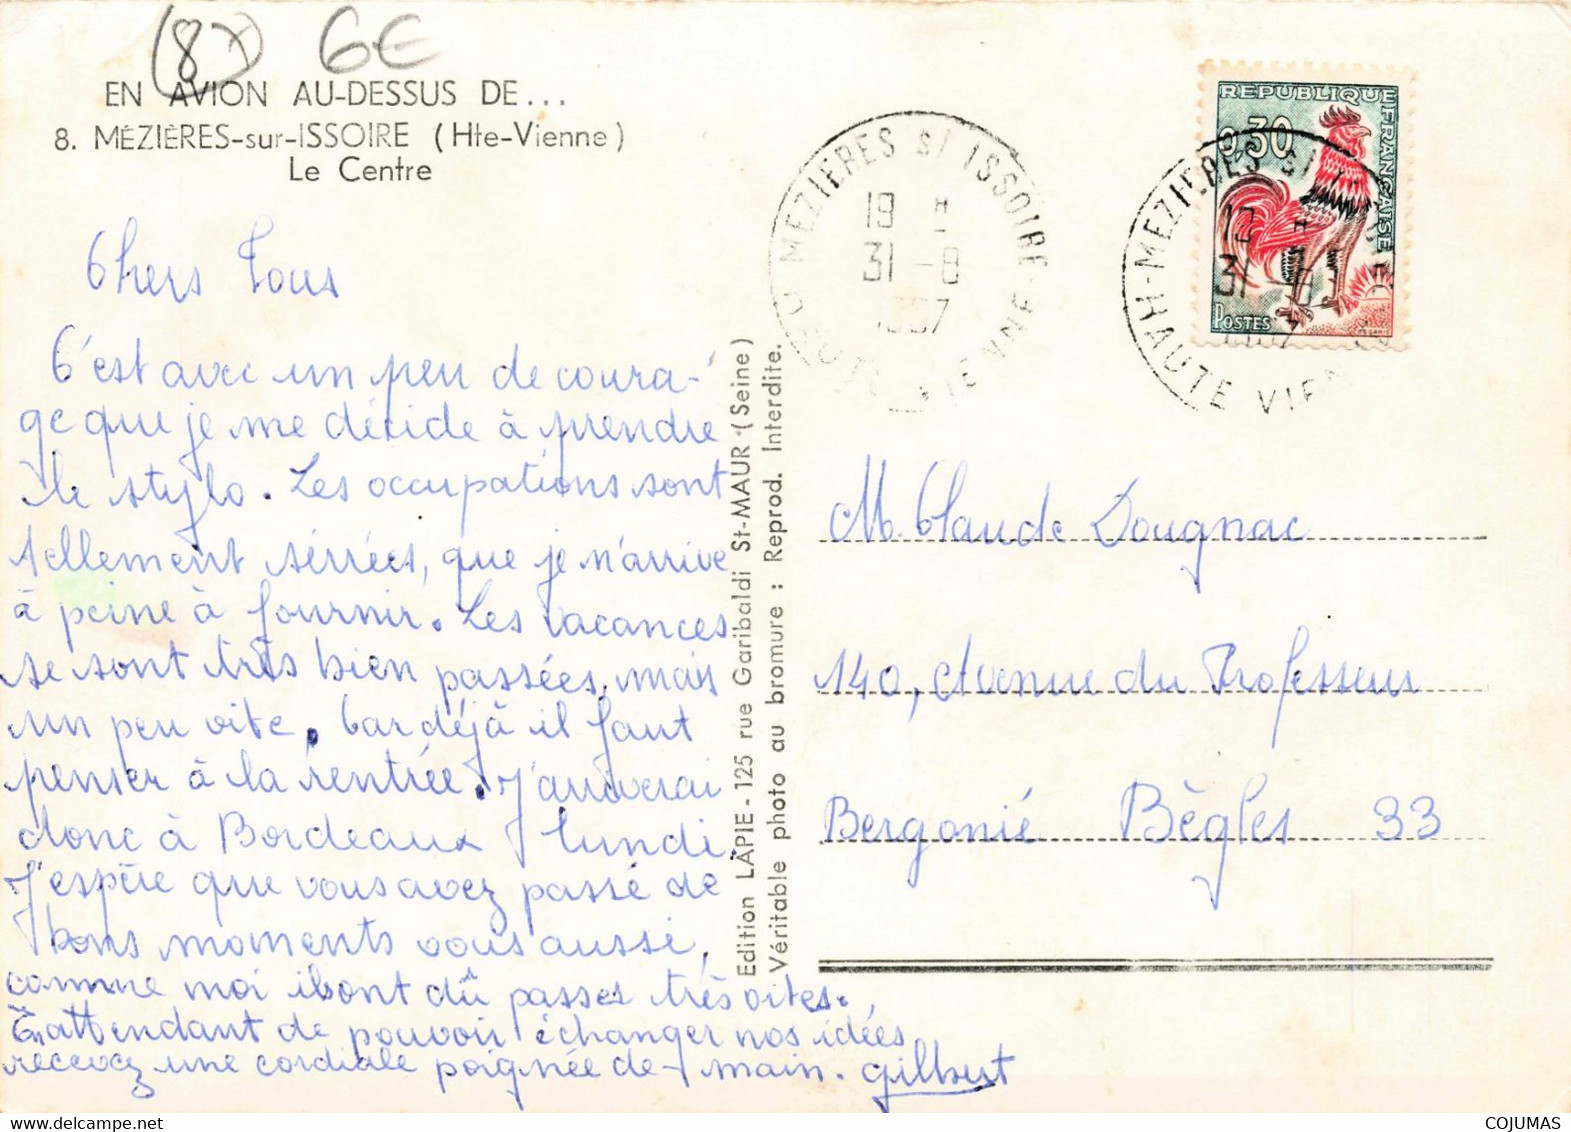 (8x) 6€
EN AVION AU-DESSUS DE...
8. MÉZIÈRES-sur-ISSOIRE (Hte-Vienne)
Le Centre
Chers Tous
C'est avec un peu de coura-
ge que je me décide à prendre
le stylo. Les occupations sont
tellement sérrées, que je n'arrive
à peine à fournir. Les vacances
se sont très bien passées, mais
un peu vite. Car déjà il faut
penser à la rentrée. J'arriverai
donc à Bordeaux lundi.
J'espère que vous avez passé de
bons moments vous aussi,
comme moi ils ont dû passés très vites.
En attendant de pouvoir échanger nos idées,
recevez une cordiale poignée de main. Gilbert
Edition LAPIE - 125 rue Garibaldi St-MAUR (Seine)
Véritable photo au bromure : Reprod. Interdite.
MEZIERES S/ ISSOIRE
19 H
31 -8
HAUTE VIENNE
REPUBLIQUE FRANÇAISE
0,30
POSTES
MEZIERES S/
31 -8
HAUTE VIEN
M. Claude Dougnac
140, Avenue du Professeur
Bergonié Bègles 33
COJUMAS